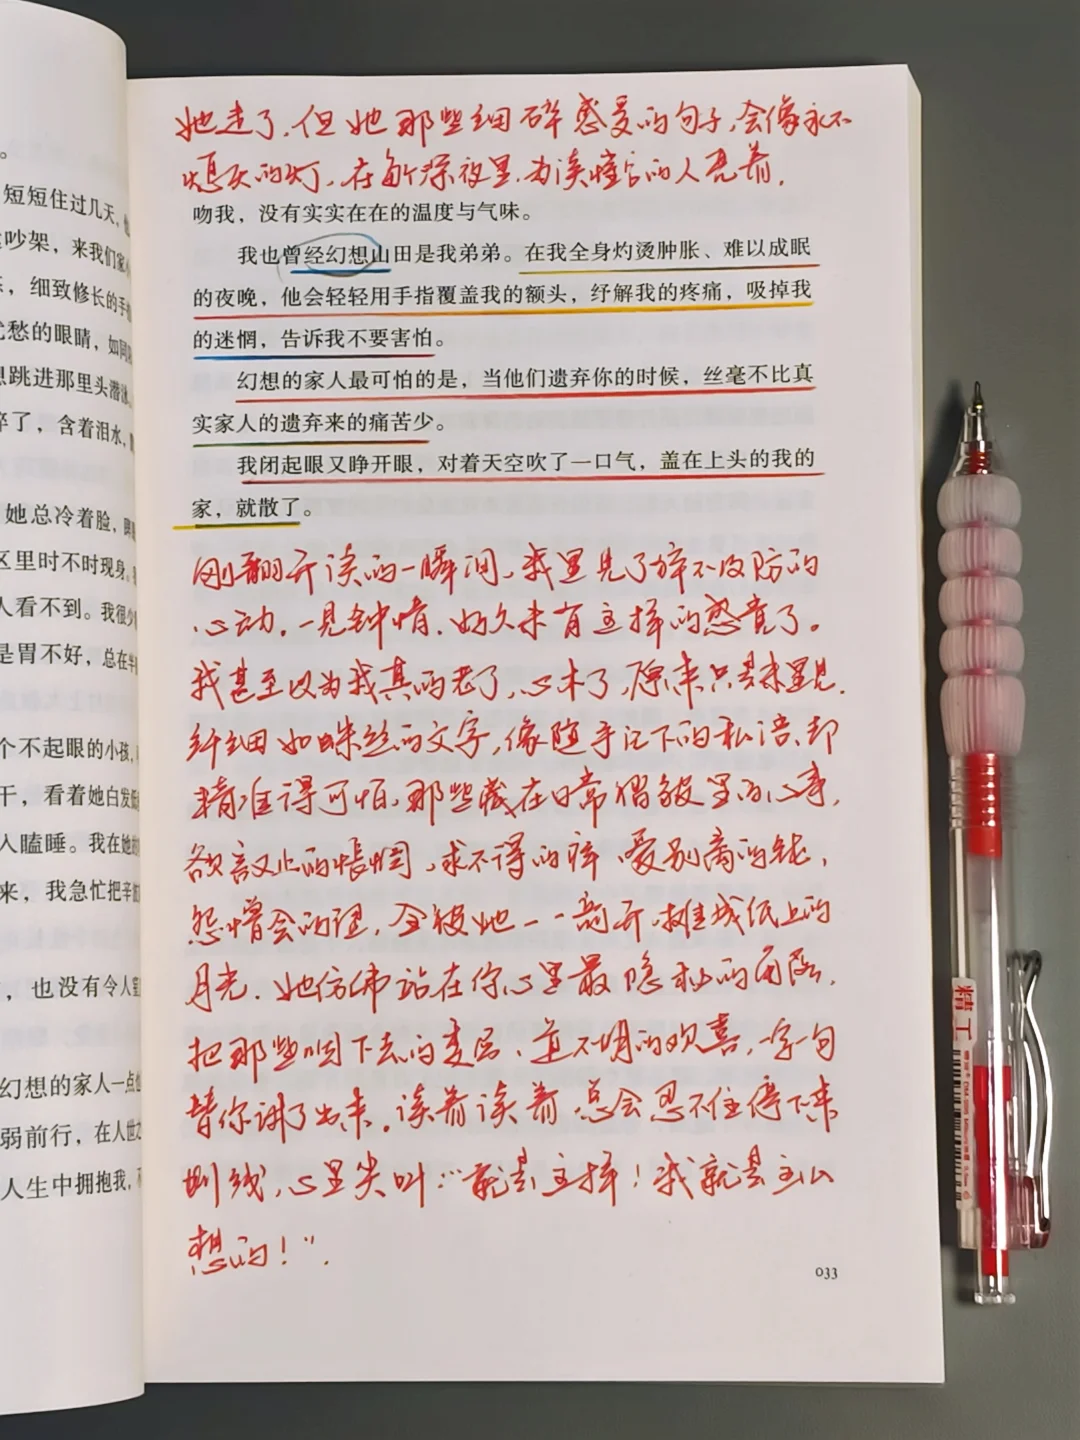 。
短短住过几天，
吵架，来我们家
，细致修长的手指
忧愁的眼睛，如同
想跳进那里头潜泳
碎了，含着泪水，
她总冷着脸，
区里时不时现身。
人看不到。我很少
是胃不好，总在半
个不起眼的小孩，
干，看着她白发
人瞌睡。我在她
来，我急忙把辛
，也没有令人
幻想的家人一点也
弱前行，在人世之
人生中拥抱我，
她走了，但她那些细碎感受的句子，会像永不
熄灭的灯，在每个深夜里，为读懂它的人亮着，
吻我，没有实实在在的温度与气味。
我也曾经幻想山田是我弟弟。在我全身灼烫肿胀、难以成眠
的夜晚，他会轻轻用手指覆盖我的额头，纾解我的疼痛，吸掉我
的迷惘，告诉我不要害怕。
幻想的家人最可怕的是，当他们遗弃你的时候，丝毫不比真
实家人的遗弃来的痛苦少。
我闭起眼又睁开眼，对着天空吹了一口气，盖在上头的我的
家，就散了。
刚翻开读的一瞬间，我遇见了猝不及防的
心动。一见钟情，好久未有这样的感觉了。
我甚至以为我真的老了，心木了，原来只是未遇见，
纤细如蛛丝的文字，像随手记下的私语，却
精准得可怕，那些藏在日常褶皱里的心事，
欲言又止的怅惘，求不得的痒，爱别离的钝，
怨憎会的涩，全被她一一剖开，摊成纸上的
月光，她仿佛站在你心里最隐私的角落，
把那些咽下去的委屈、道不明的欢喜，一字一句
替你讲了出来。读着读着总会忍不住停下来
划线，心里尖叫：“就是这样！我就是这么
想的！”．
033
精工